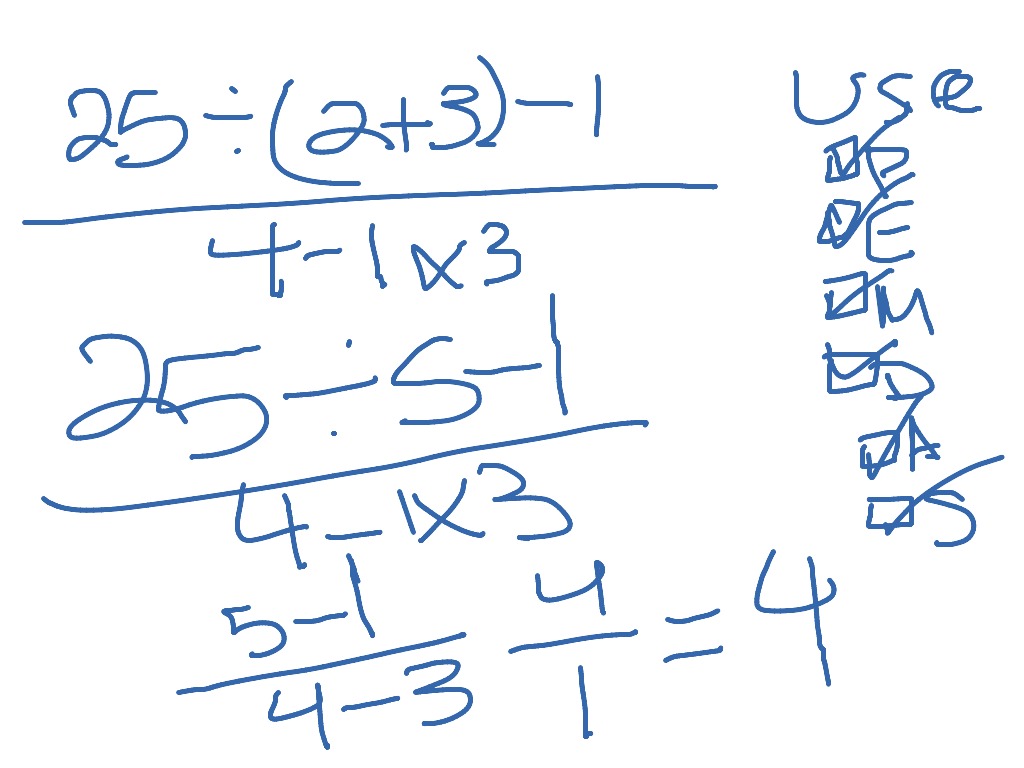 25 ÷ (2+3) - 1
4 - 1 x 3
25 ÷ 5 - 1
4 - 1 x 3
5 - 1
4 - 3
4
1
= 4
Use
P
E
M
D
A
S